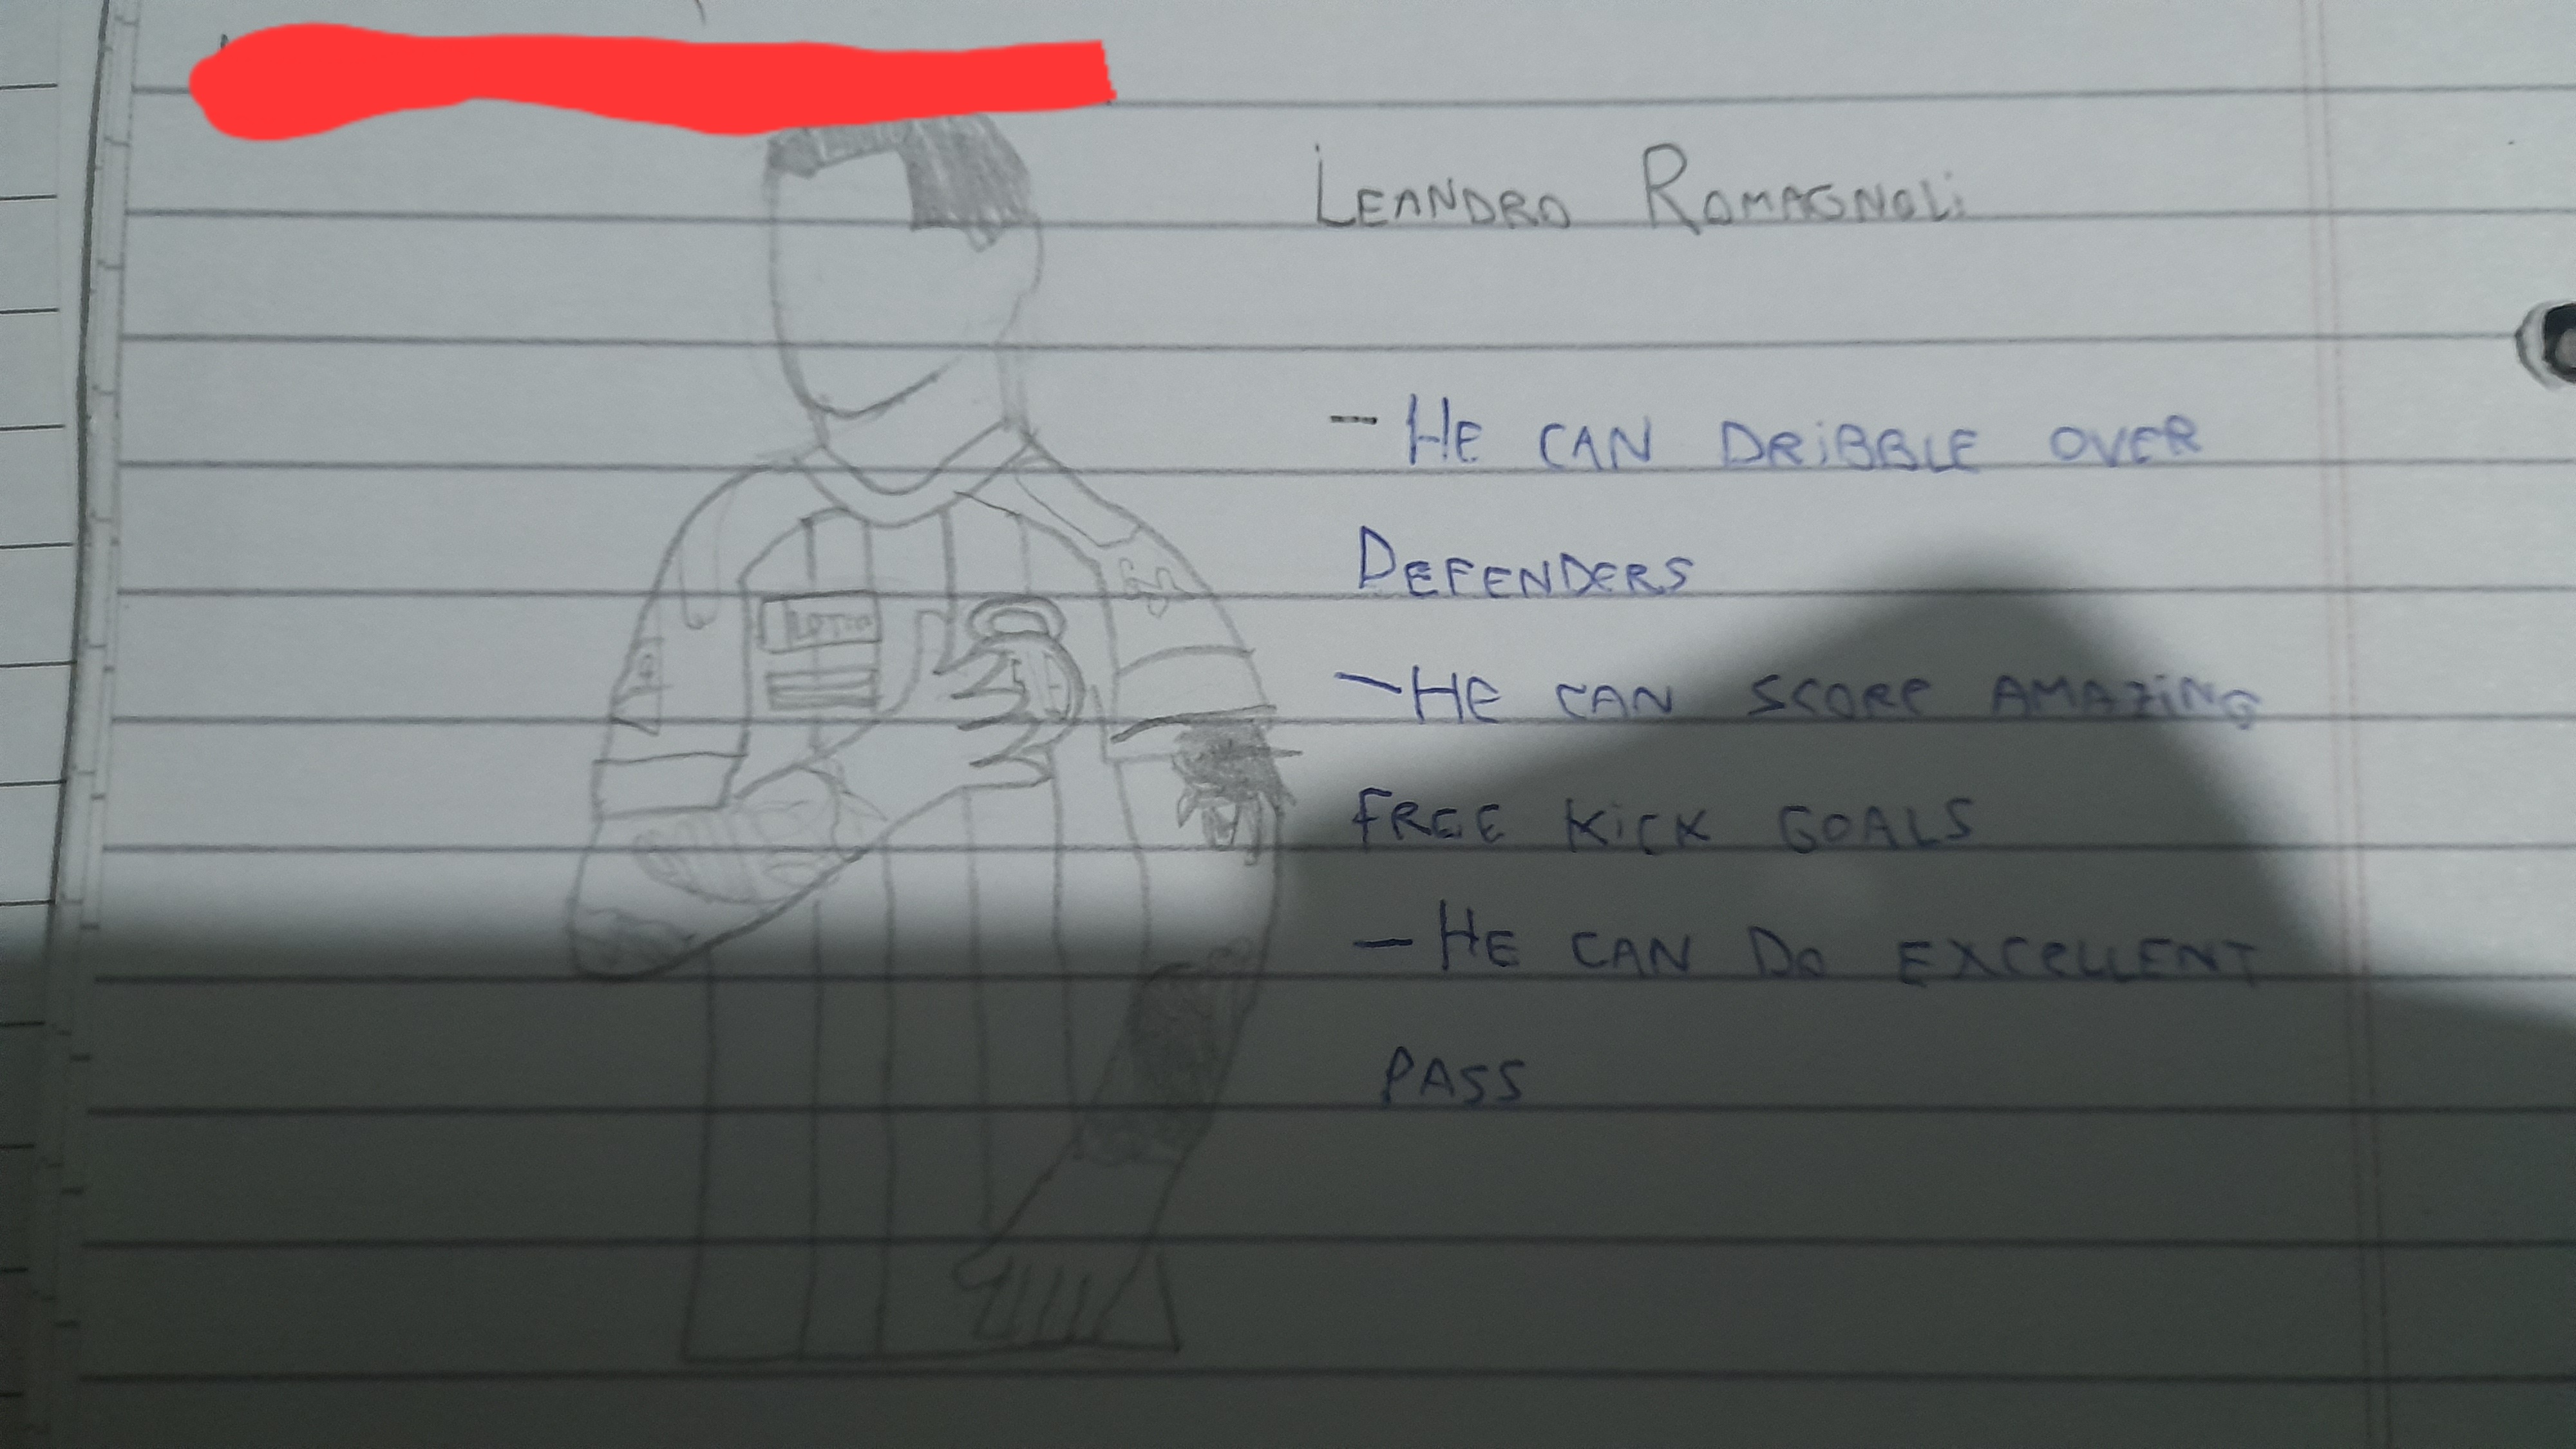 LEANDRO ROMAGNOLi
- HE CAN DRiBBLE OVER
DEFENDERS
- HE CAN SCORE AMAZiNG
FREE KiCK GOALS
- HE CAN DO EXCELLENT
PASS
LOTTO